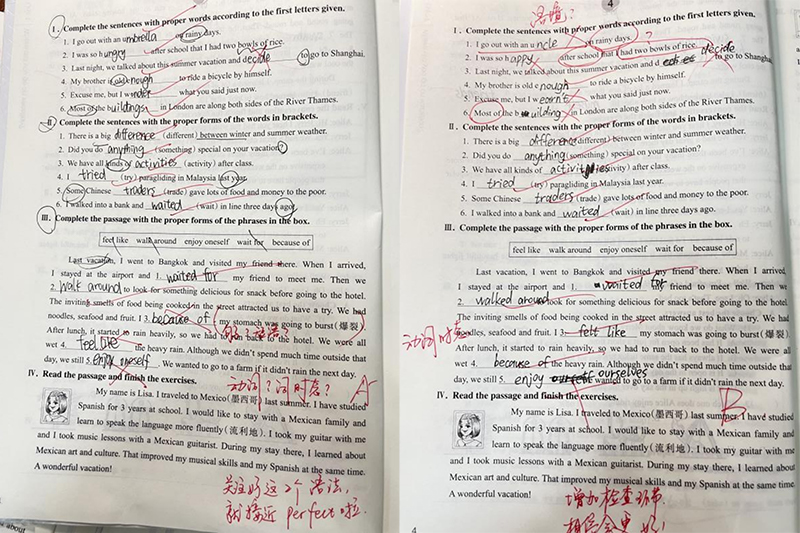 I. Complete the sentences with proper words according to the first letters given.
1. I go out with an umbrella on rainy days.
2. I was so hungry after school that I had two bowls of rice.
3. Last night, we talked about this summer vacation and decide to go to Shanghai.
4. My brother is old enough to ride a bicycle by himself.
5. Excuse me, but I what you said just now.
6. Most of the buildings in London are along both sides of the River Thames.
II. Complete the sentences with the proper forms of the words in brackets.
1. There is a big difference (different) between winter and summer weather.
2. Did you do anything (something) special on your vacation?
3. We have all kinds of activities (activity) after class.
4. I tried (try) paragliding in Malaysia last year.
5. Some Chinese traders (trade) gave lots of food and money to the poor.
6. I walked into a bank and waited (wait) in line three days ago.
III. Complete the passage with the proper forms of the phrases in the box.
feel like walk around enjoy oneself wait for because of
Last vacation, I went to Bangkok and visited my friend there. When I arrived,
I stayed at the airport and 1. waited for my friend to meet me. Then we
2. walk around to look for something delicious for snack before going to the hotel.
The inviting smells of food being cooked in the street attracted us to have a try. We had
noodles, seafood and fruit. I 3. because of my stomach was going to burst(爆裂).
After lunch, it started to rain heavily, so we had to run back to the hotel. We were all
wet 4. feel like the heavy rain. Although we didn't spend much time outside that
day, we still 5. enjoy oneself. We wanted to go to a farm if it didn't rain the next day.
动词？时态？
A
IV. Read the passage and finish the exercises.
My name is Lisa. I traveled to Mexico(墨西哥) last summer. I have studied
Spanish for 3 years at school. I would like to stay with a Mexican family and
learn to speak the language more fluently(流利地). I took my guitar with me
and I took music lessons with a Mexican guitarist. During my stay there, I learned about
Mexican art and culture. That improved my musical skills and my Spanish at the same time.
A wonderful vacation!
关注好这2个语法，
就接近 perfect 啦.
about
4
语境？
I. Complete the sentences with proper words according to the first letters given.
1. I go out with an uncle rainy days.
2. I was so happy after school that I had two bowls of rice.
3. Last night, we talked about this summer vacation and d decide to go to Shanghai.
4. My brother is old enough to ride a bicycle by himself.
5. Excuse me, but I what you said just now.
6. Most of the building in London are along both sides of the River Thames.
II. Complete the sentences with the proper forms of the words in brackets.
1. There is a big difference (different) between winter and summer weather.
2. Did you do anything (something) special on your vacation?
3. We have all kinds of activities (activity) after class.
4. I tried (try) paragliding in Malaysia last year.
5. Some Chinese traders (trade) gave lots of food and money to the poor.
6. I walked into a bank and waited (wait) in line three days ago.
III. Complete the passage with the proper forms of the phrases in the box.
feel like walk around enjoy oneself wait for because of
Last vacation, I went to Bangkok and visited my friend there. When I arrived,
I stayed at the airport and 1. waited for my friend to meet me. Then we
2. walked around look for something delicious for snack before going to the hotel.
The inviting smells of food being cooked in the street attracted us to have a try. We had
noodles, seafood and fruit. I 3. felt like my stomach was going to burst(爆裂).
动词时态
After lunch, it started to rain heavily, so we had to run back to the hotel. We were all
wet 4. because of the heavy rain. Although we didn't spend much time outside that
day, we still 5. enjoy ourselves We wanted to go to a farm if it didn't rain the next day.
B
IV. Read the passage and finish the exercises.
My name is Lisa. I traveled to Mexico(墨西哥) last summer. I have studied
Spanish for 3 years at school. I would like to stay with a Mexican family and
learn to speak the language more fluently(流利地). I took my guitar with me
and I took music lessons with a Mexican guitarist. During my stay there, I learned about
Mexican art and culture. That improved my musical skills and my Spanish at the same time.
A wonderful vacation!
增加检查环节
相信会更好！
4